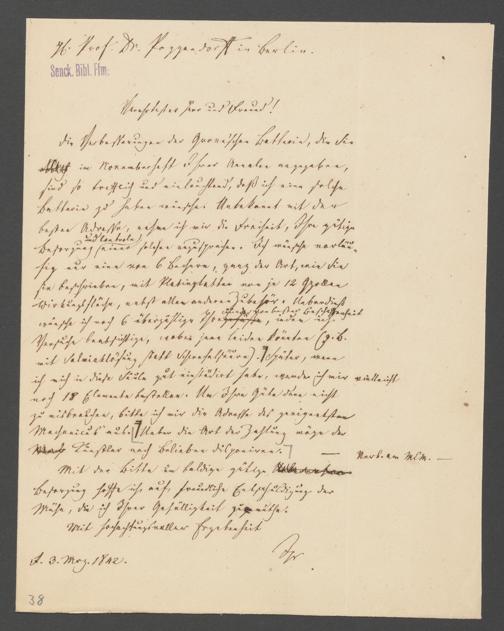 H. Prof. Dr. Poggendorff in Berlin.
Senck. Bibl. Ffm.
Verehrtester Herr und Freund!
Die Verbesserungen der Groveschen Batterie, die Sie
im Novemberheft Ihrer Annalen angegeben,
sind so trefflich und einleuchtend, daß ich eine solche
Batterie zu haben wünsche. Unbekannt mit der
besten Adresse, nehme ich mir die Freiheit, Ihre gütige
und Controle
Besorgung einer solchen anzusprechen. Ich wünsche vorläu-
fig nur eine von 6 Bechern, ganz der Art, wie Sie
sie beschrieben, mit Platinplatten von je 12 Zollen
Wirkungsfläche, nebst allem anderen Zubehör. Ueberdieß
wünsche ich noch 6 überzählige
Versuche beabsichtige, wobei jene leiden könnten (z.B.
mit Salmiaklösung, statt Schwefelsäure). Später, wenn
ich mich in diese Säule gut einstudirt habe, werde ich mir vielleicht
noch 18 Elemente bestellen. Um Ihre Güte dann nicht
zu misbrauchen, bitte ich mir die Adresse des geeignetsten
Mechanicus aus. Ueber die Art der Zahlung möge der
Künstler nach Belieben disponiren.
Mit der Bitte um baldige gütige
Besorgung hoffe ich auf freundliche Entschuldigung der
Mühe, die ich Ihrer Gefälligkeit zumuthe.
Mit hochachtungsvoller Ergebenheit
Ihr
F. 3. Mrz. 1842.
38